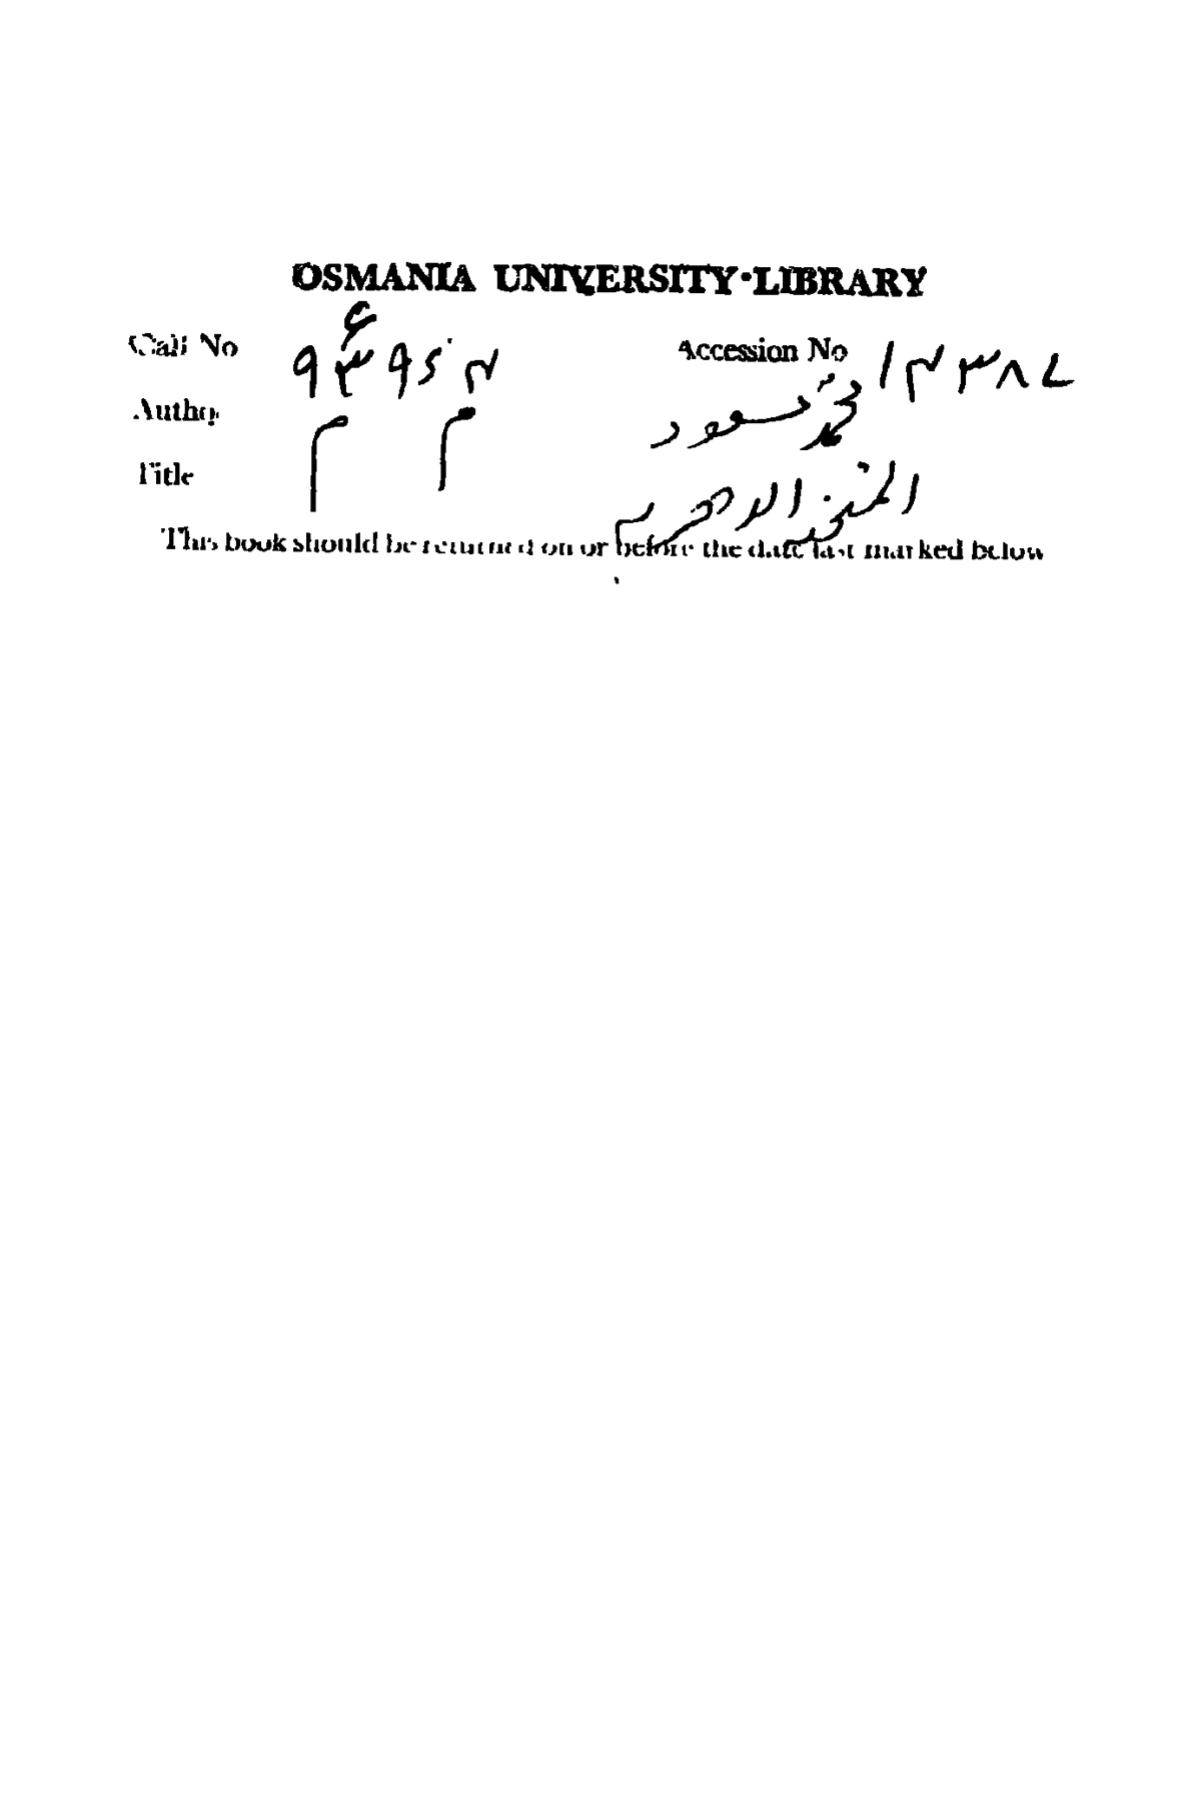 OSMANIA UNIVERSITY LIBRARY
Call No ع ۹۳۹٫۶۴ Accession No ۱۴۳۸۷
Author م م محمد مسعود
Title
This book should be returned on or before the date last marked below